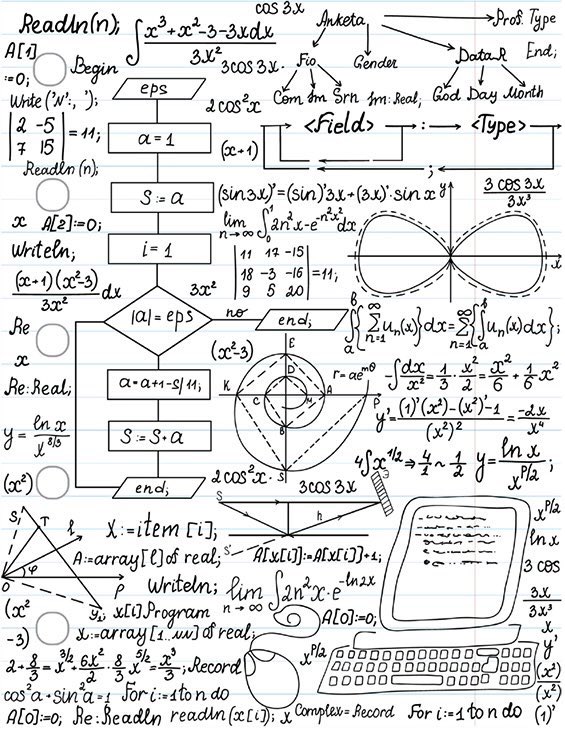 cos 3x
Readln(n);
∫ x³+x²-3-3xdx / 3x²
Anketa
Prof. Type
A[1]
:=0;
Begin
3cos3x.
Fio
Gender
DataR
End;
eps
Write('N:', ');
2cos²x
Com Im Srn
Im: Real;
God Day Month
|2 -5|
|7 15| = 11;
a=1
(x+1)
<Field> : <Type>
;
Readln(n);
S:=a
(sin3x)'=(sin)'3x+(3x)'·sin x
y
3 cos 3x / 3x³
x A[2]:=0;
lim n→∞ ∫₀¹ 2n²x-e^-n²x² dx
Writeln;
i=1
|11 17 -15|
|18 -3 -16| = 11;
|9 5 20|
x
(x+1)(x²-3) / 3x² dx
3x²
|a|=eps
no
end;
∫ₐᵇ{∑ₙ₌₁^∞ uₙ(x)}dx=∑ₙ₌₁^∞{∫ₐᵇ uₙ(x)dx};
Re
x
(x²-3)
E
D
r=ae^mθ
K C M A P
B
S
-∫ dx/x² = 1/3 · x²/2 = x²/6 + 1/6 x²
Re:Real;
a=a+1-S/11;
y'= (1)'(x²)-(x²)'·1 / (x²)² = -2x / x⁴
y= ln x / x^8/3
S:=S+a
4∫x^1/2 ⇒ 4/1 ~ 1/2
y= ln x / x^P/2;
(x²)
end;
2cos²x·
3cos3x
S
h
S'
S₁
T
ℓ
O
φ
P
y₁
X:=item[i];
x^P/2
ln x
A:=array[l] of real;
A[x[i]]:=A[x[i]]+1;
3 cos
Writeln;
lim n→∞ ∫2n²x·e^-ln2x
3x / 3x³
(x²
-3)
x[i] Program
A[0]:=0;
x
x:=array[1..nn] of real;
y'
2+8/3=x^3/2+6x²/2·8/3x^5/2=x³/3;
Record
x^P/2
(x²) / (x²)
cos²a+sin²a=1
For i:=1 to n do
A[0]:=0;
Re:Readln
readln(x[i]);
x
Complex=Record
For i:=1 to n do
(1)'